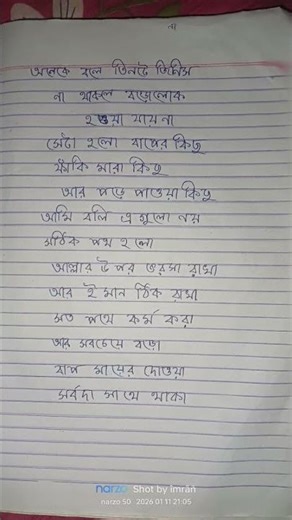 অনেকে বলে তিনটে জিনিস
না থাকলে বড়োলোক
হওয়া যায় না
সেটা হলো বাপের কিছু
ফাঁকি মারা কিছু
আর পড়ে পাওয়া কিছু
আমি বলি এ গুলো নয়
সঠিক পথ হলো
আল্লার উপর ভরসা রাখা
আর ইমান ঠিক রাখা
সত পথে কর্ম করা
আর সবচেয়ে বড়ো
বাপ মায়ের দোওয়া
সর্বদা সাথে থাকা
narzo Shot by imrán
narzo 50 2026 01 11 21:05